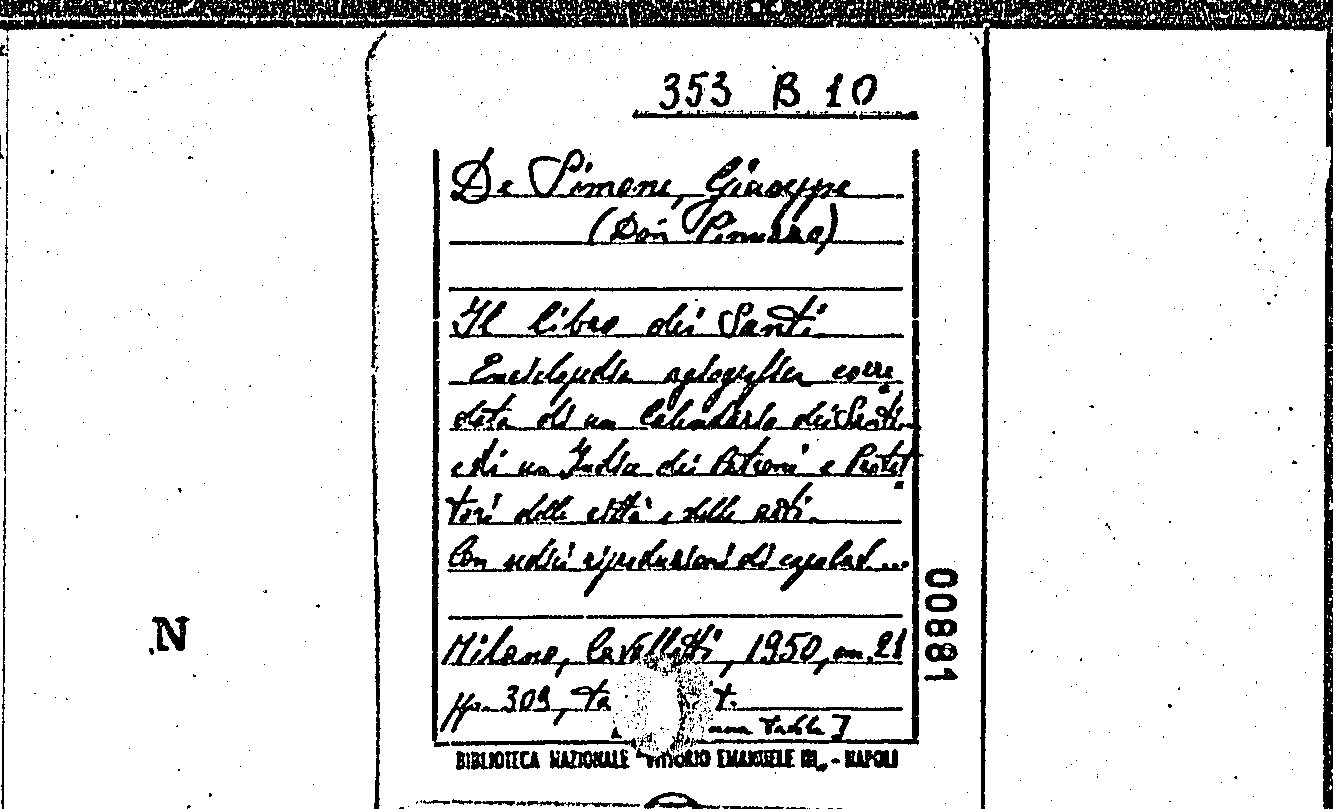 353 B 10
De Simone, Giuseppe
(Don Pinuccio)
Il libro dei Santi
Enciclopedia agiografica corre
data di un Calendario dei Santi
e di un Indice dei Patroni e Protet
tori delle città e delle arti.
Con sedici riproduzioni di capolav...
Milano, Cavallotti, 1950, cm. 21
pp. 309, ta t.
una tabella]
BIBLIOTECA NAZIONALE "VITTORIO EMANUELE III„ - NAPOLI
00881
N